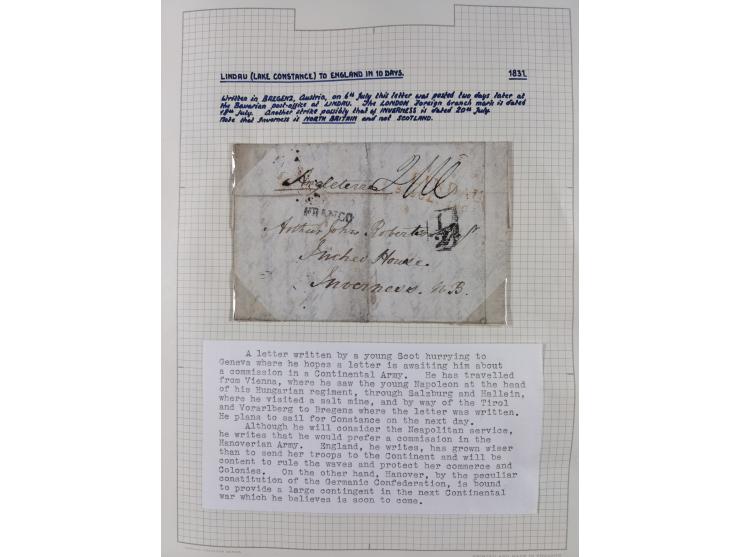 LINDAU (LAKE CONSTANCE) TO ENGLAND IN 10 DAYS. 1831.
Written in BREGENZ, Austria, on 6th July this letter was posted two days later at
the Bavarian post-office at LINDAU. The LONDON Foreign branch mark is dated
18th July. Another strike possibly that of INVERNESS is dated 20th July.
Note that Inverness is NORTH BRITAIN and not SCOTLAND.
Angleterre
FRANCO
Arthur John Robertson Esqr
Inches House.
Inverness. N.B.
A letter written by a young Scot hurrying to
Geneva where he hopes a letter is awaiting him about
a commission in a Continental Army. He has travelled
from Vienna, where he saw the young Napoleon at the head
of his Hungarian regiment, through Salzburg and Hallein,
where he visited a salt mine, and by way of the Tirol
and Vorarlberg to Bregenz where the letter was written.
He plans to sail for Constance on the next day.
Although he will consider the Neapolitan service,
he writes that he would prefer a commission in the
Hanoverian Army. England, he writes, has grown wiser
than to send her troops to the Continent and will be
content to rule the waves and protect her commerce and
Colonies. On the other hand, Hanover, by the peculiar
constitution of the Germanic Confederation, is bound
to provide a large contingent in the next Continental
war which he believes is soon to come.